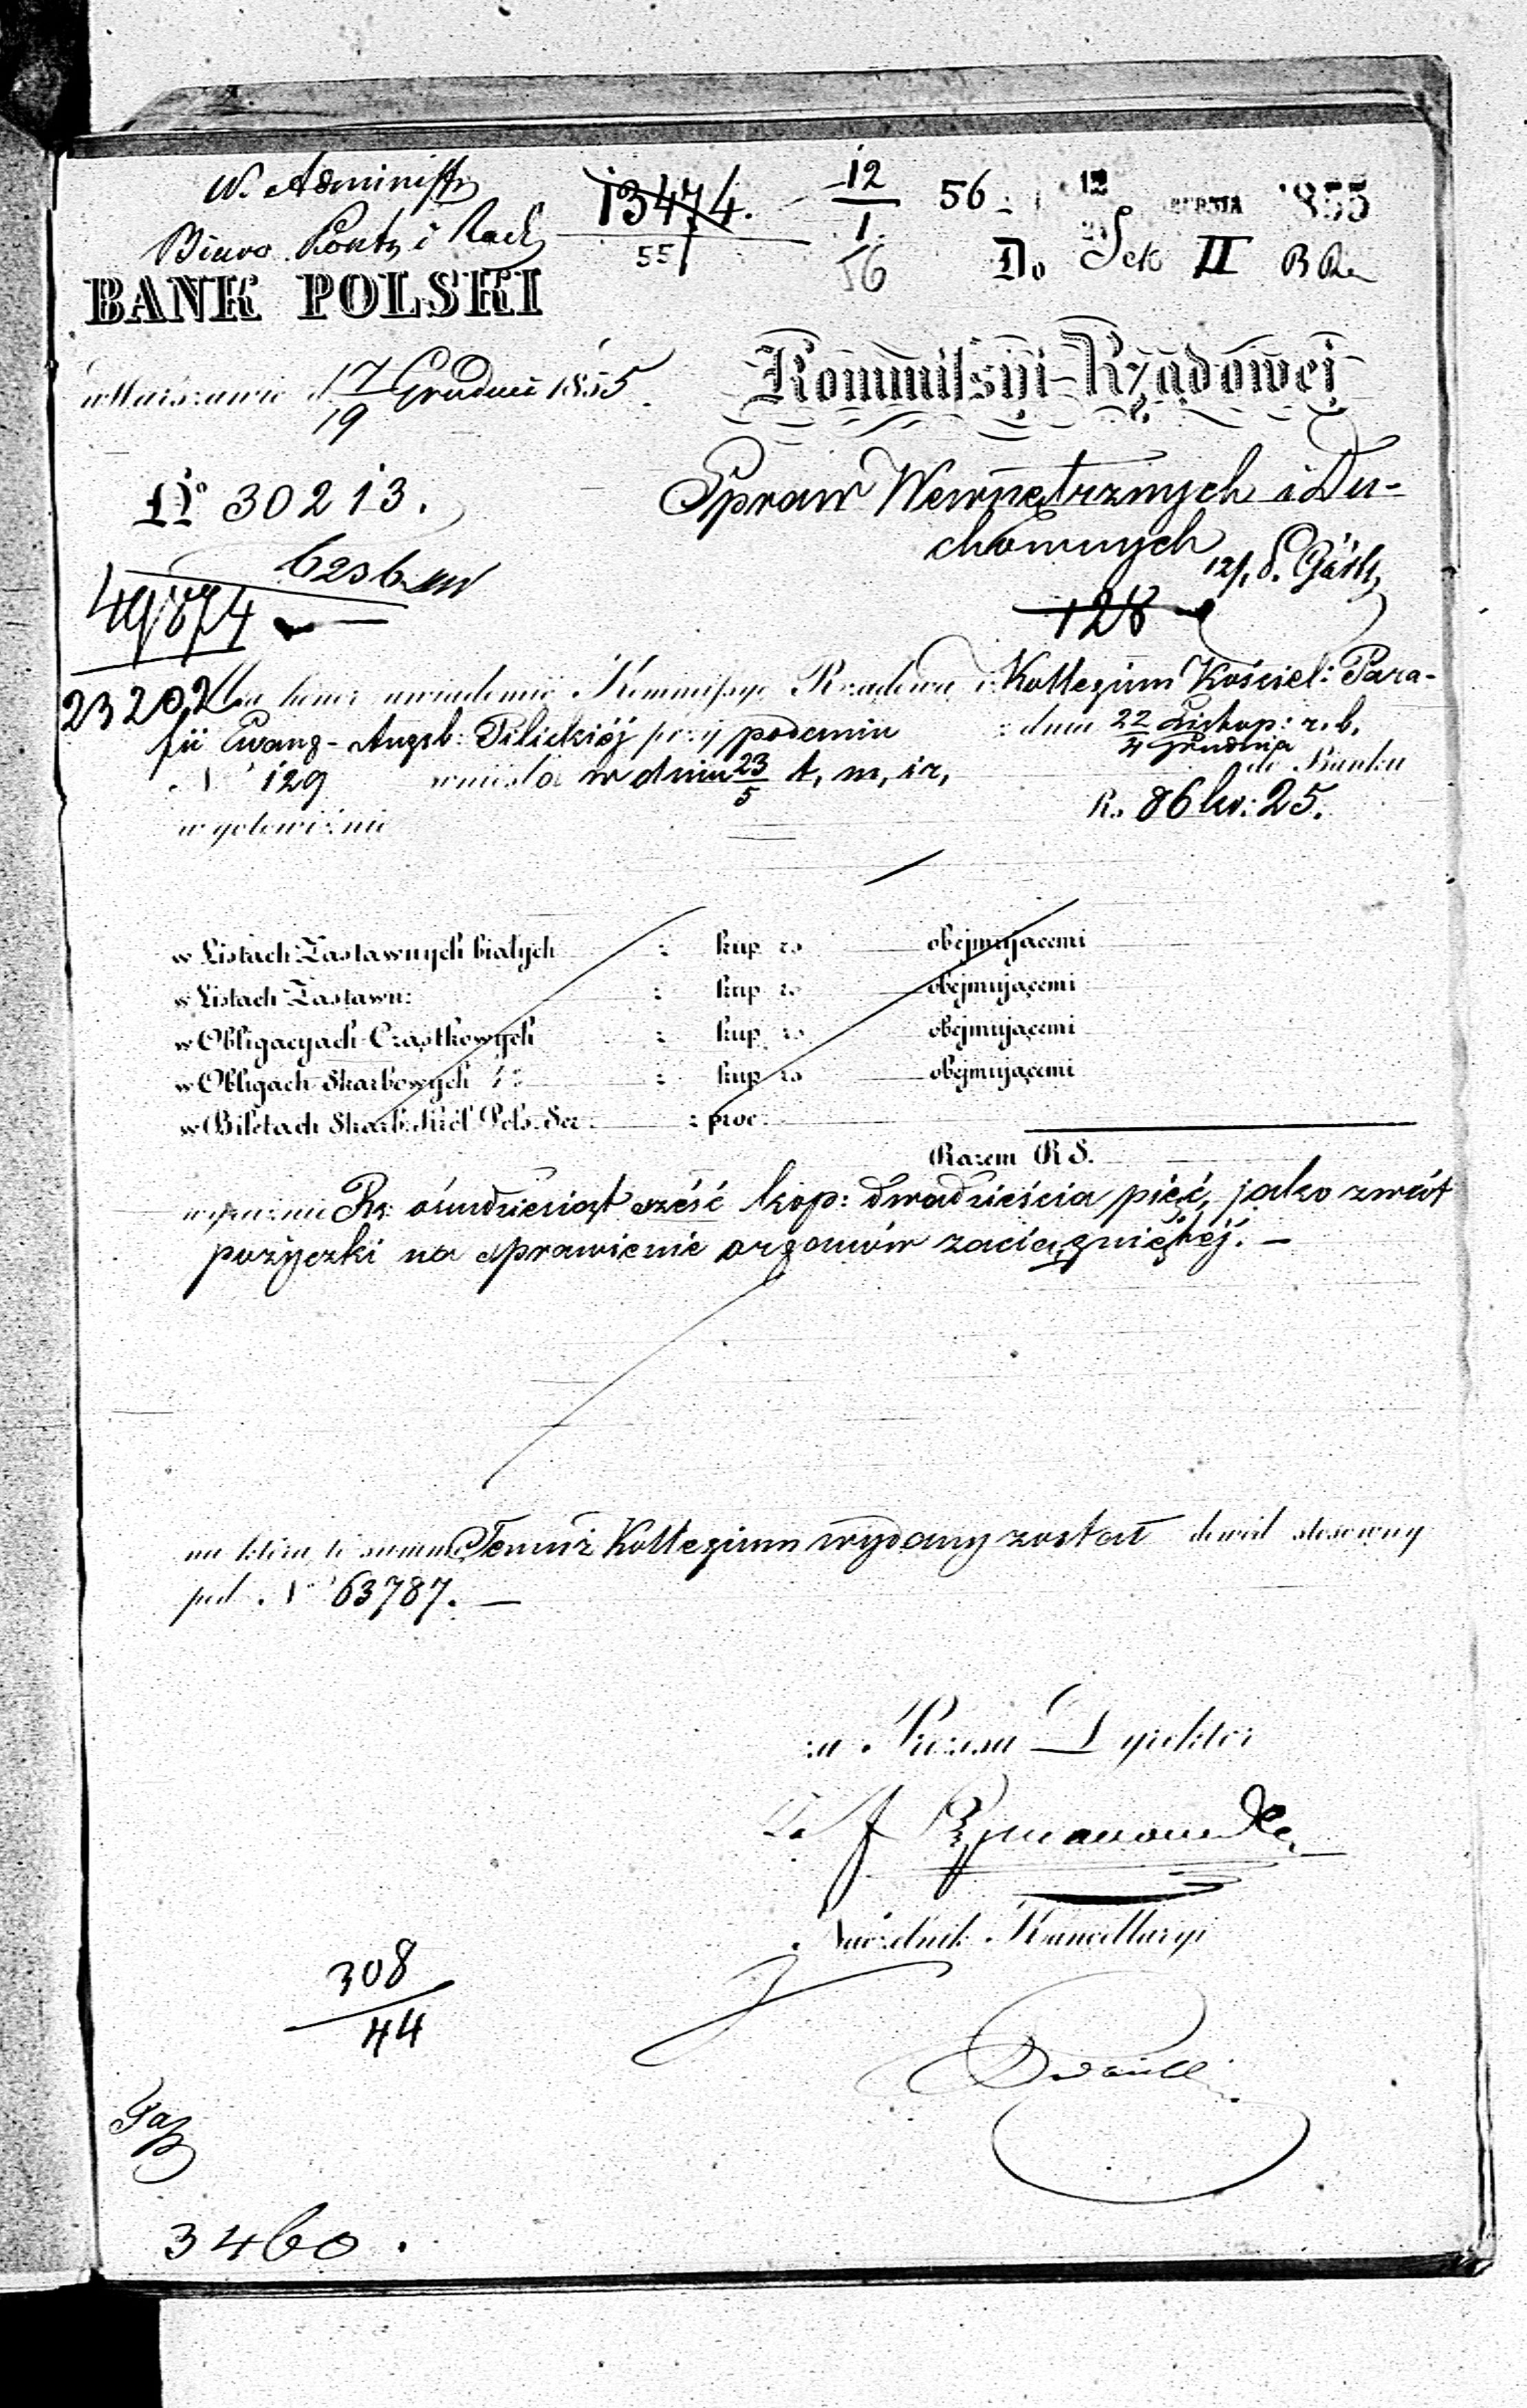 W. Administr
Biuro Kontr i Rach
BANK POLSKI
13474.
55
12
1
56
56
12 1855
Do Sek II
w Warszawie d 7/19 Grudnia 1855
Kommissyi Rządowej
No 30213.
Spraw Wewnętrznych i Du-
chownych
6236
49874
128
23202
Ma honor uwiadomić Kommissyę Rządową iż Kollegium Kościel: Para-
fii Ewang-Augsb: Pilickiéj przy podaniu z dnia 22 Listop: / 4 Grudnia r. b.
No 129 wniosło w dniu 23/5 t, m, i r, do Banku
w gotowiźnie Rs 86 ko: 25.
w Listach Zastawnych białych z kup zo obejmującemi
w Listach Zastawn: z kup zo obejmującemi
w Obligacyach Cząstkowych z kup zo obejmującemi
w Obligach Skarbowych z kup zo obejmującemi
w Biletach Skarb. Król Pols. Ser: z proc.
Razem R S.
wyraźnie Rs: ośmdziesiąt sześć kop: dwadzieścia pięć, jako zwrót
pożyczki na sprawienie organów zaciągniętéj. —
na którą to summę Temuż Kollegium wydany został dowód stosowny
pod No 63787. —
za Prezesa Dyrektor
Naczelnik Kancellaryi
308
44
3460.